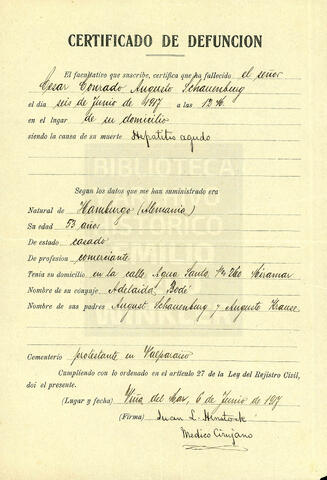 CERTIFICADO DE DEFUNCION
El facultativo que suscribe, certifica que ha fallecido el señor
Cesar Conrado Augusto Schauenburg
el día seis de Junio de 1917 a las 12 M.
en el lugar de su domicilio
siendo la causa de su muerte Hepatitis aguda
Segun los datos que me han suministrado era
Natural de Hamburgo (Alemania)
Su edad 53 años
De estado casado
De profesion comerciante
Tenia su domicilio en la calle Agua Santa, Miramar
Nombre de su conyuje, Adelaida Bodé
Nombre de sus padres August Schauenburg y Augusta Krause
Cementerio protestante en Valparaiso
Cumpliendo con lo ordenado en el artículo 27 de la Ley del Rejistro Civil,
doi el presente.
(Lugar y fecha) Viña del Mar, 6 de Junio de 1917
(Firma) Juan L.
Medico Cirujano
BIBLIOTECA
HISTORICO